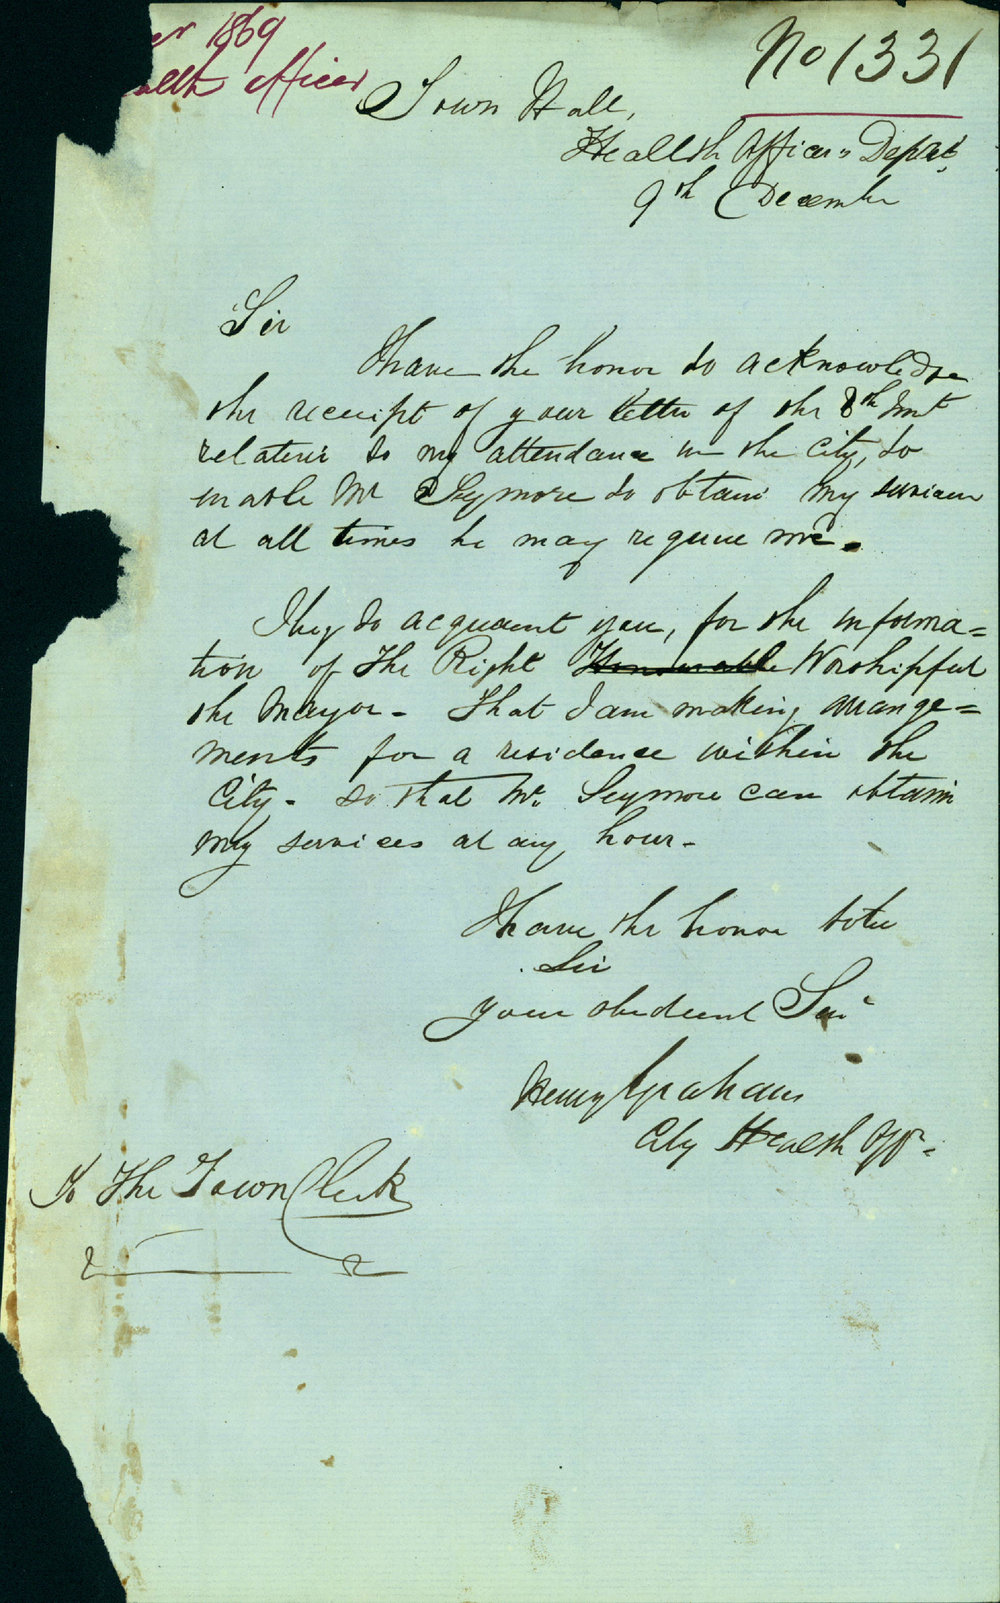 er 1869
alth officer
No 1331
Town Hall,
Health Officers Depat.
9th December
Sir
I have the honor to acknowledge
the receipt of your letter of the 8th Inst
relative to my attendance in the City, to
enable Mr Seymore to obtain my services
at all times he may require me.
I beg to acquaint you, for the informa=
tion of the Right Honourable Worshipful
the Mayor - that I am making arrange=
ments for a residence within the
City - so that Mr. Seymore can obtain
my services at any hour -
I have the honor to be
Sir
your obedient Ser
Henry Graham
City Health Offr.
To The Town Clerk